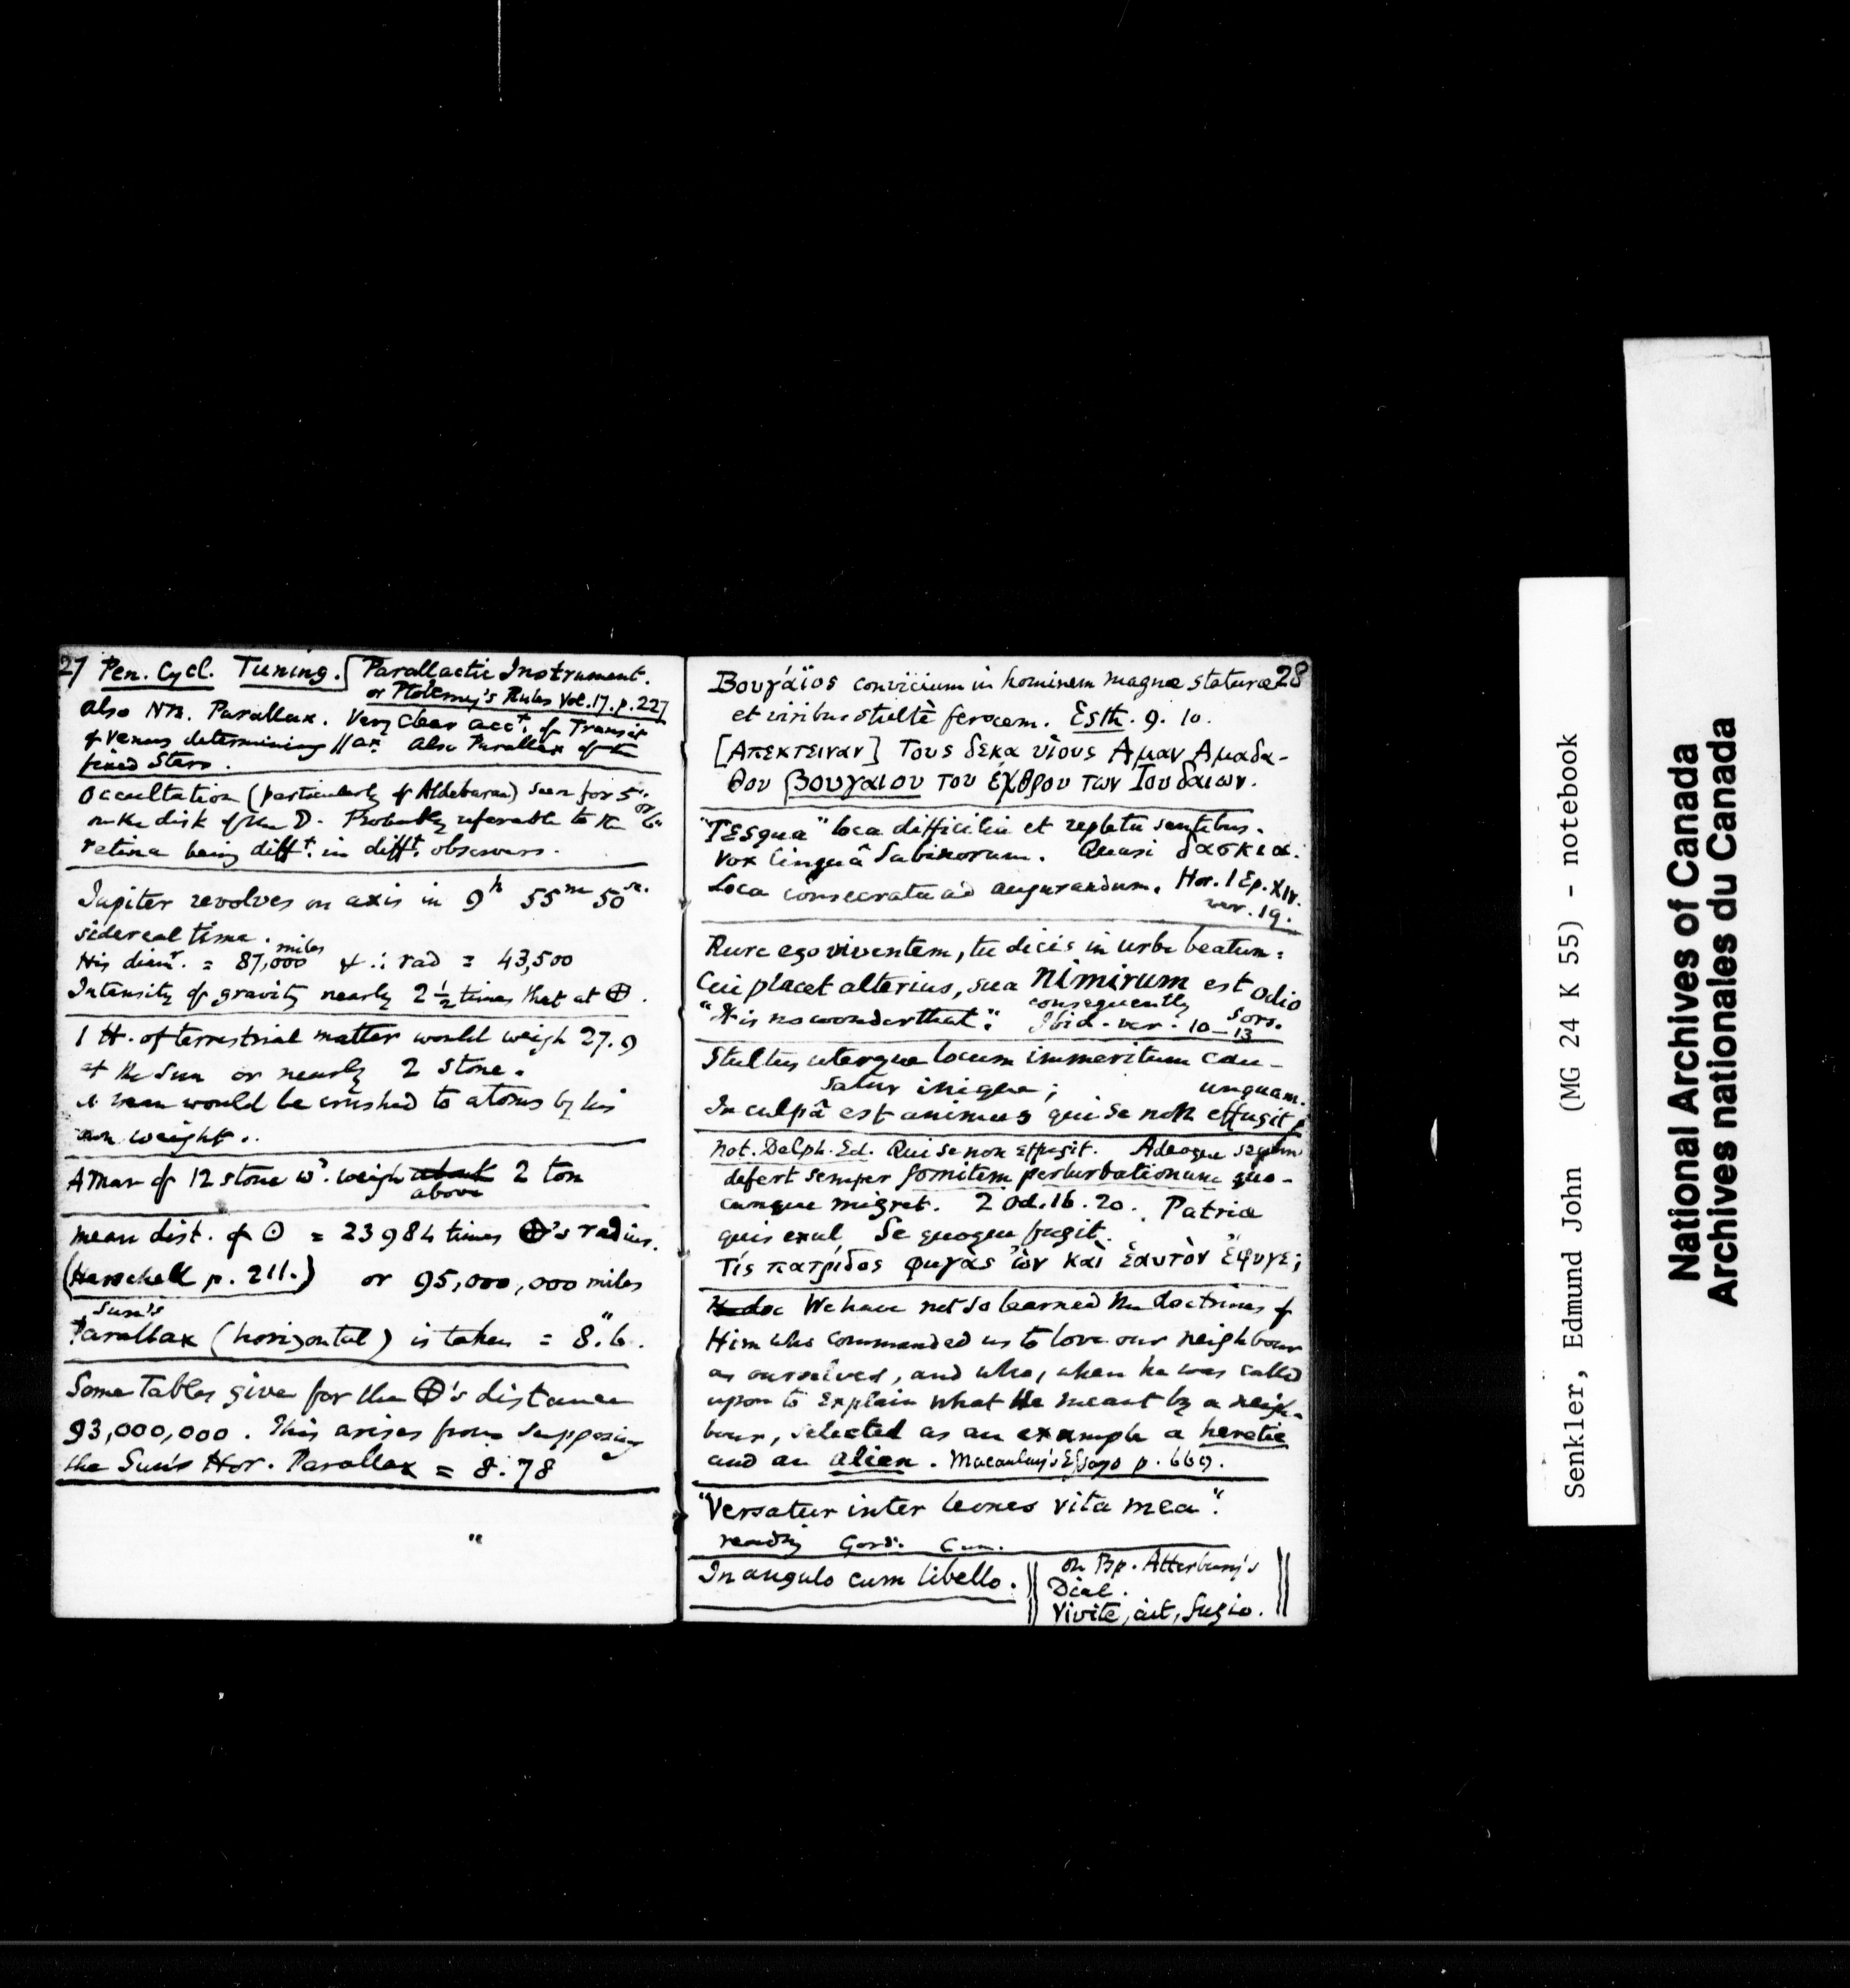 27 Pen. Cycl. Tuning. Parallactic Instrument.
or Ptolemy's Rules Vol. 17. p. 227
also NB. Parallax. Very clear acct. of Transit
of Venus determining //ax. Also Parallax of the
fixed Stars.
Occultation (particularly of Aldebaran) seen for 5s. or 6s.
on the disk of the D. Probably referable to the
retina being difft. in difft. observers.
Jupiter revolves on axis in 9h 55m 50se.
sidereal time.
His diamr. = 87,000 miles & ∴ rad = 43,500
Intensity of gravity nearly 2 1/2 times that at ⊕.
1 lb. of terrestrial matter would weigh 27.9
at the Sun or nearly 2 Stone.
A man would be crushed to atoms by his
own weight..
A Man of 12 stone wd. weigh about 2 ton
above
mean dist. of ⊙ = 23984 times ⊕'s radius.
(Herschell p. 211.) or 95,000,000 miles
Sun's
Parallax (horizontal) is taken = 8."6.
Some Tables give for the ⊕'s distance
93,000,000. This arises from supposing
the Sun's Hor. Parallax = 8.78
"
Βουγάϊος convicium in hominem magnæ staturæ 28
et viribus stultè ferocem. Esth. 9. 10.
[Απεκτειναν] τους δεκα υἱους Αμαν Αμαδα-
θου βουγαιου του ἐχθρου των Ιουδαιων.
"Tesqua" loca difficilia et repleta sentibus.
Vox linguâ Sabinorum. Quasi δασκια.
Loca consecrata ad augurandum. Hor. 1 Ep. XIV.
ver. 19.
Rure ego viventem, tu dicis in urbe beatum:
Cui placet alterius, sua nimirum est odio
consequently sors.
"It is no wonder that". Ibid. ver. 10–13
Stultus uterque locum immeritum cau-
satur iniquè; unquam.
In culpâ est animus qui se non effugit
Not. Delph. Ed. Qui se non effugit. Adeoque secum
defert semper fomitem perturbationum quo-
cunque migret. 2 Od. 16. 20. Patriæ
quis exul Se quoque fugit.
Τίς πατρίδος φυγὰς ὢν καὶ ἑαυτὸν ἔφυγε;
We have not so learned the doctrines of
Him who commanded us to love our neighbour
as ourselves, and who, when he was called
upon to explain what He meant by a neigh-
bour, selected as an example a heretic
and an alien. Macaulay's Essays p. 669.
"Versatur inter leones vita mea".
reading
In angulo cum libello.
On Bp. Atterbury's
Dial.
Vivite, ait, fugio.
Senkler, Edmund John (MG 24 K 55) - notebook
National Archives of Canada
Archives nationales du Canada